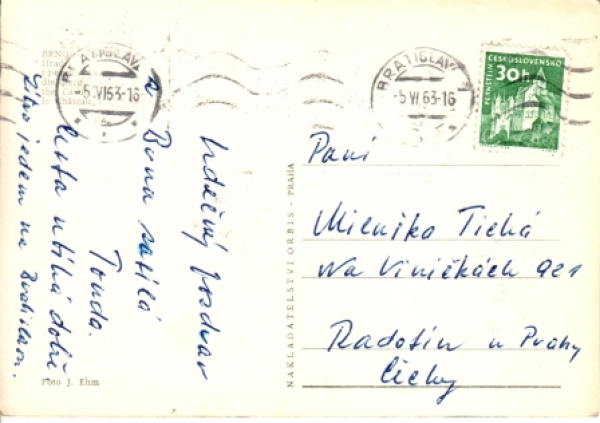 BRNO
BRATISLAVA
-5.VI.63-16
BRATISLAVA
-5.VI.63-16
ČESKOSLOVENSKO
30 h
PERNŠTEJN
Srdečný pozdrav
z Brna zasílá
Tonda.
Cesta utíká dobře
Zítra jedem na Bratislavu.
Foto J. Ehm
NAKLADATELSTVÍ ORBIS - PRAHA
Paní
Milenika Tichá
Na Viničkách 921
Radotín u Prahy
Čechy